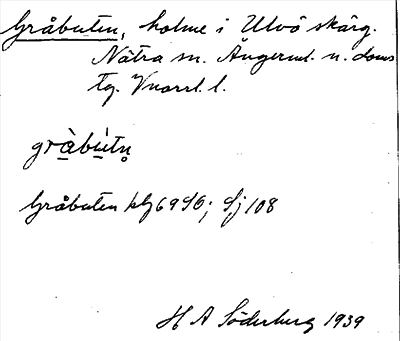 Gråbuten, holme i Ulvö skärg.
Nätra sn. Ångerml. n. doms
tg. Vnorrl. l.
gràbùtn̥
Gråbuten klg 69 SO; Sj 108
H A Söderberg 1939